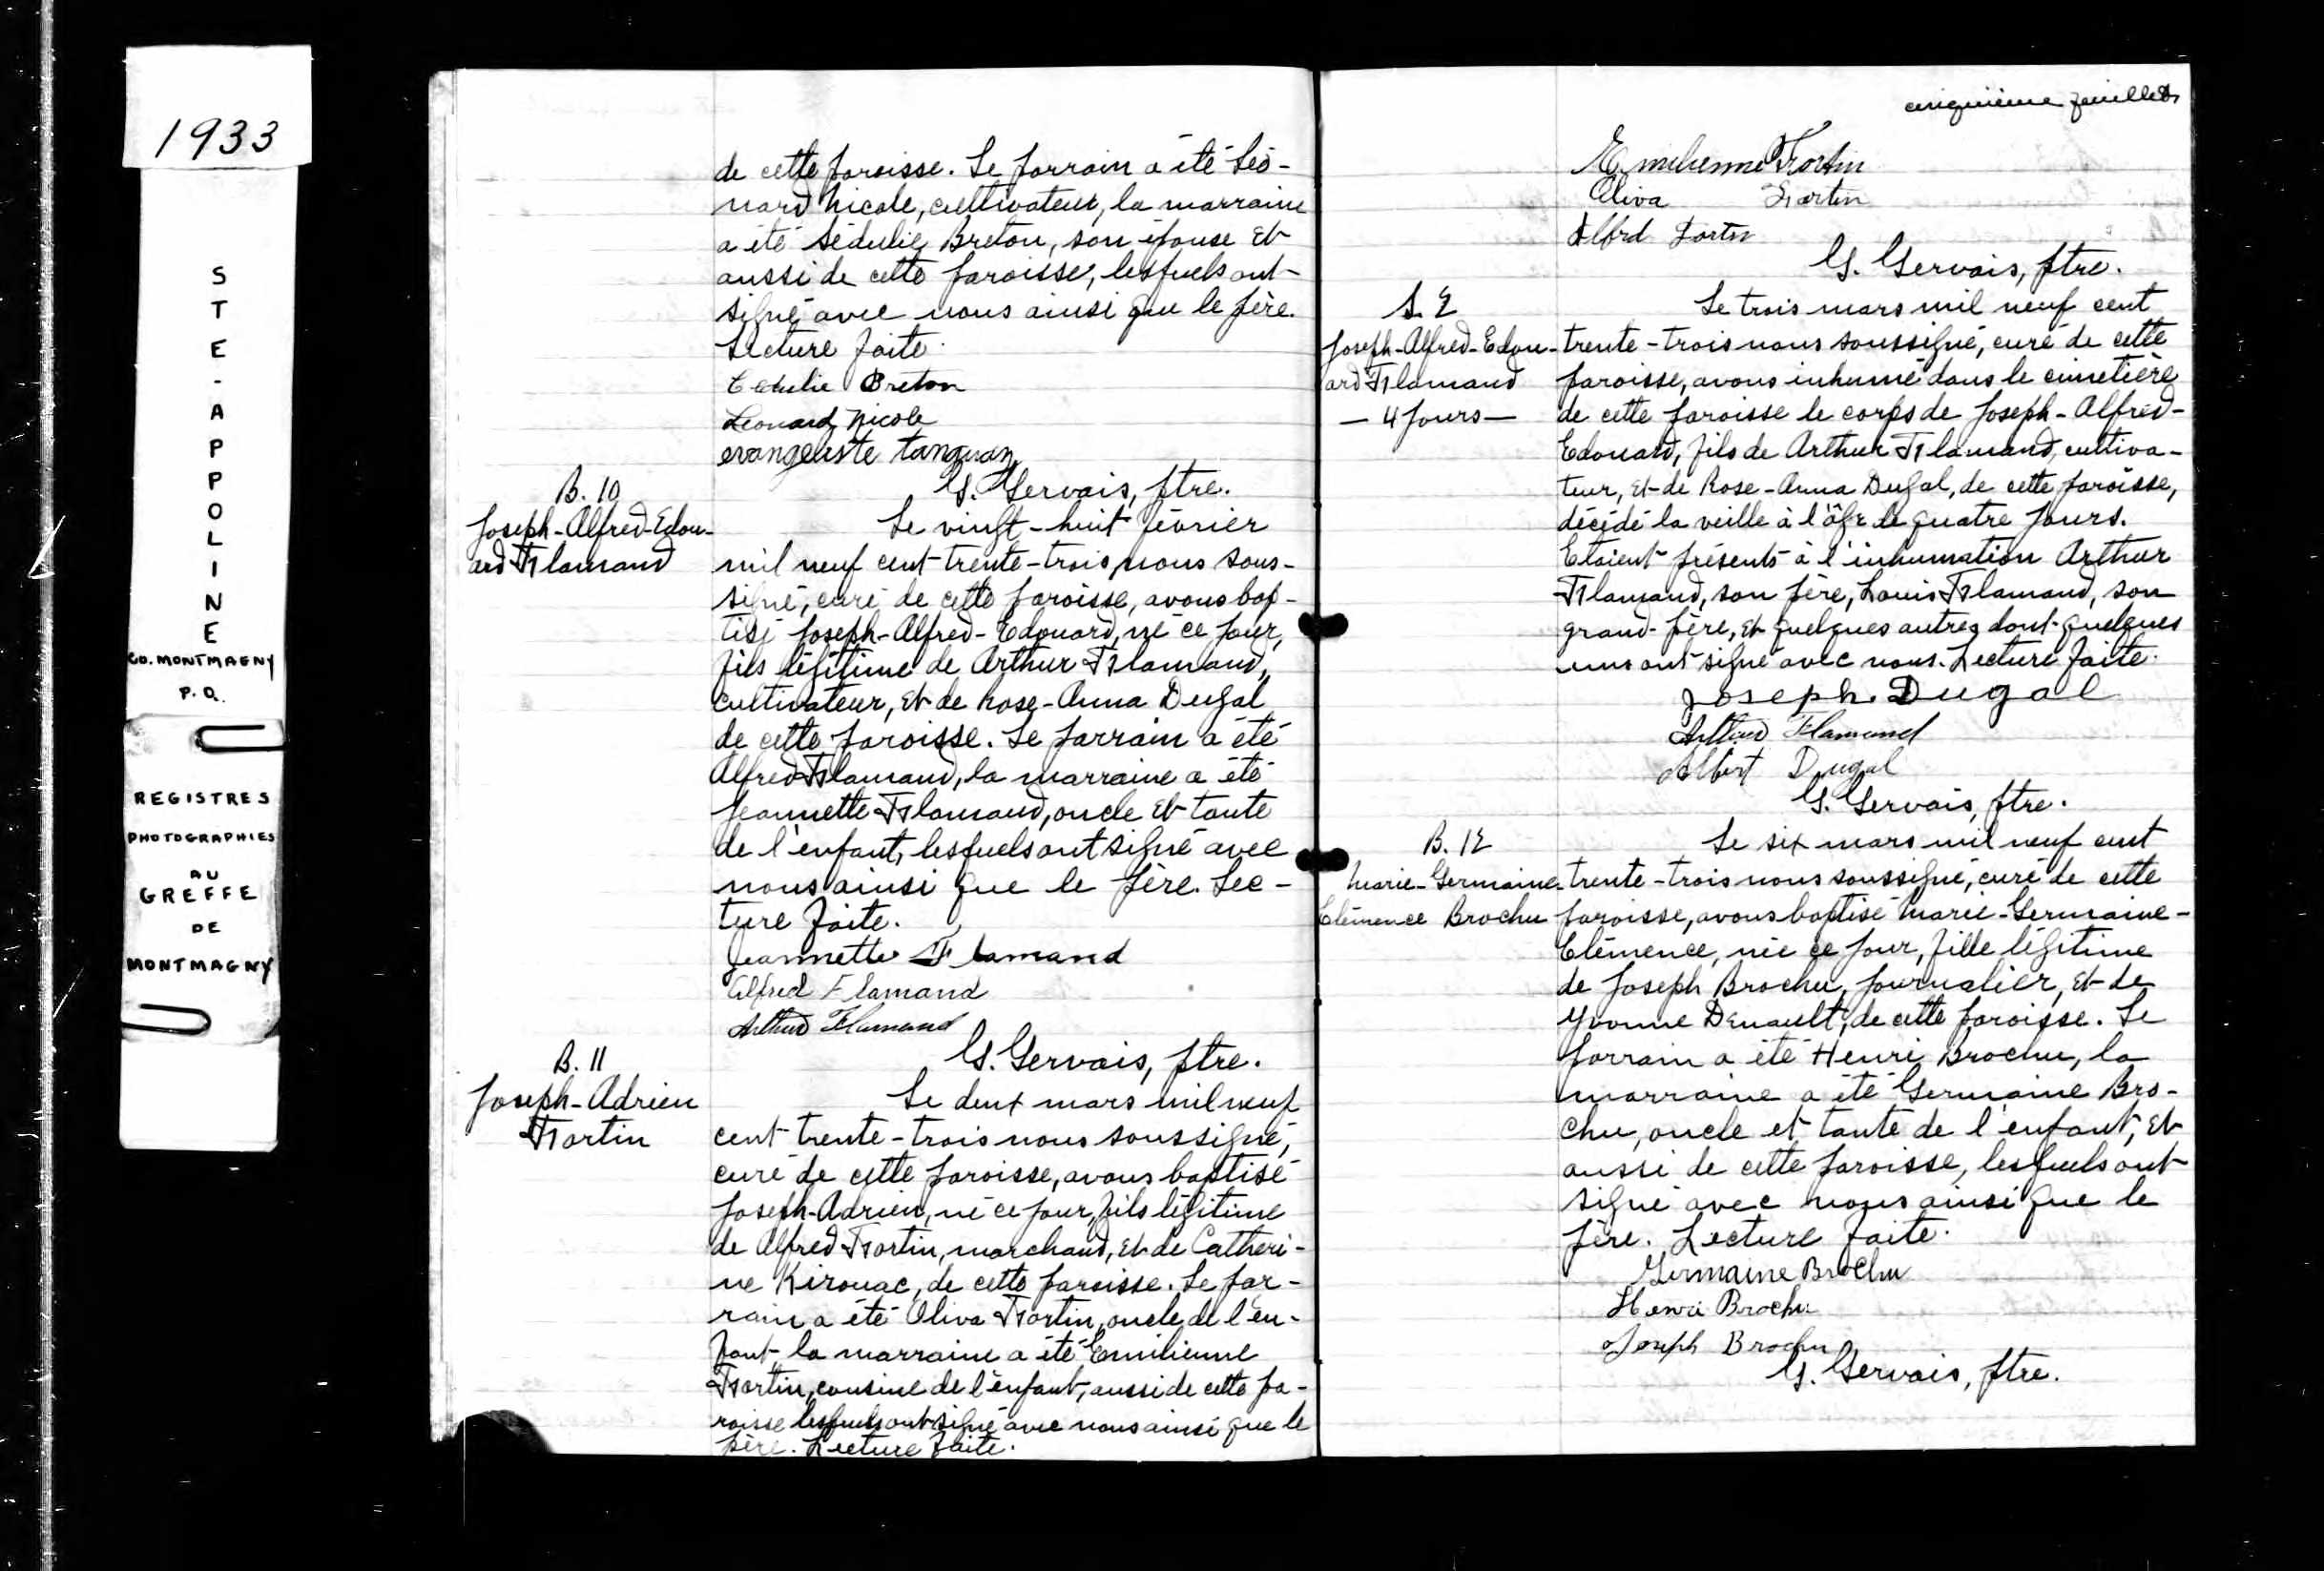 1933
S
T
E
-
A
P
P
O
L
I
N
E
CO. MONTMAGNY
P.Q.
REGISTRES
PHOTOGRAPHIES
AU
GREFFE
DE
MONTMAGNY
de cette paroisse. Le parrain a été Léo-
nard Nicole, cultivateur, la marraine
a été Sédulie Breton, son épouse et
aussi de cette paroisse, lesquels ont
signé avec nous ainsi que le père.
Lecture faite.
Cedulie Breton
Leonard Nicole
evangeliste tanguay
G. Gervais, ptre.
B. 10
Joseph-Alfred-Edou-
ard Flamand
Le vingt-huit février
mil neuf cent trente-trois, nous sous-
signé, curé de cette paroisse, avons bap-
tisé Joseph-Alfred-Edouard, né ce jour,
fils légitime de Arthur Flamand,
cultivateur, et de Rose-Anna Dugal
de cette paroisse. Le parrain a été
Alfred Flamand, la marraine a été
Jeannette Flamand, oncle et tante
de l'enfant, lesquels ont signé avec
nous ainsi que le père. Lec-
ture faite.
Jeannette Flamand
Alfred Flamand
Arthur Flamand
G. Gervais, ptre.
B. 11
Joseph-Adrien
Fortin
Le deux mars mil neuf
cent trente-trois nous soussigné,
curé de cette paroisse, avons baptisé
Joseph-Adrien, né ce jour, fils légitime
de Alfred Fortin, marchand, et de Catheri-
ne Kirouac, de cette paroisse. Le par-
rain a été Oliva Fortin, oncle de l'en-
fant, la marraine a été Emilienne
Fortin, cousine de l'enfant, aussi de cette pa-
roisse lesquels ont signé avec nous ainsi que le
père. Lecture faite.
cinquième feuillet
Emilienne Fortin
Oliva Fortin
Alfrd Fortin
G. Gervais, ptre.
S. 2
Joseph-Alfred-Edou-
ard Flamand
— 4 jours —
Le trois mars mil neuf cent
trente-trois nous soussigné, curé de cette
paroisse, avons inhumé dans le cimetière
de cette paroisse le corps de Joseph-Alfred-
Edouard, fils de Arthur Flamand, cultiva-
teur, et de Rose-Anna Dugal, de cette paroisse,
décédé la veille à l'âge de quatre jours.
Etaient présents à l'inhumation Arthur
Flamand, son père, Louis Flamand, son
grand-père, et quelques autres dont quelques
uns ont signé avec nous. Lecture faite.
Joseph Dugal
Arthur Flamand
Albert Dugal
G. Gervais, ptre.
B. 12
Marie-Germaine-
Clémence Brochu
Le six mars mil neuf cent
trente-trois nous soussigné, curé de cette
paroisse, avons baptisé Marie-Germaine-
Clémence, née ce jour, fille légitime
de Joseph Brochu, journalier, et de
Yvonne Denault, de cette paroisse. Le
parrain a été Henri Brochu, la
marraine a été Germaine Bro-
chu, oncle et tante de l'enfant, et
aussi de cette paroisse, lesquels ont
signé avec nous ainsi que le
père. Lecture faite.
Germaine Brochu
Henri Brochu
Joseph Brochu
G. Gervais, ptre.